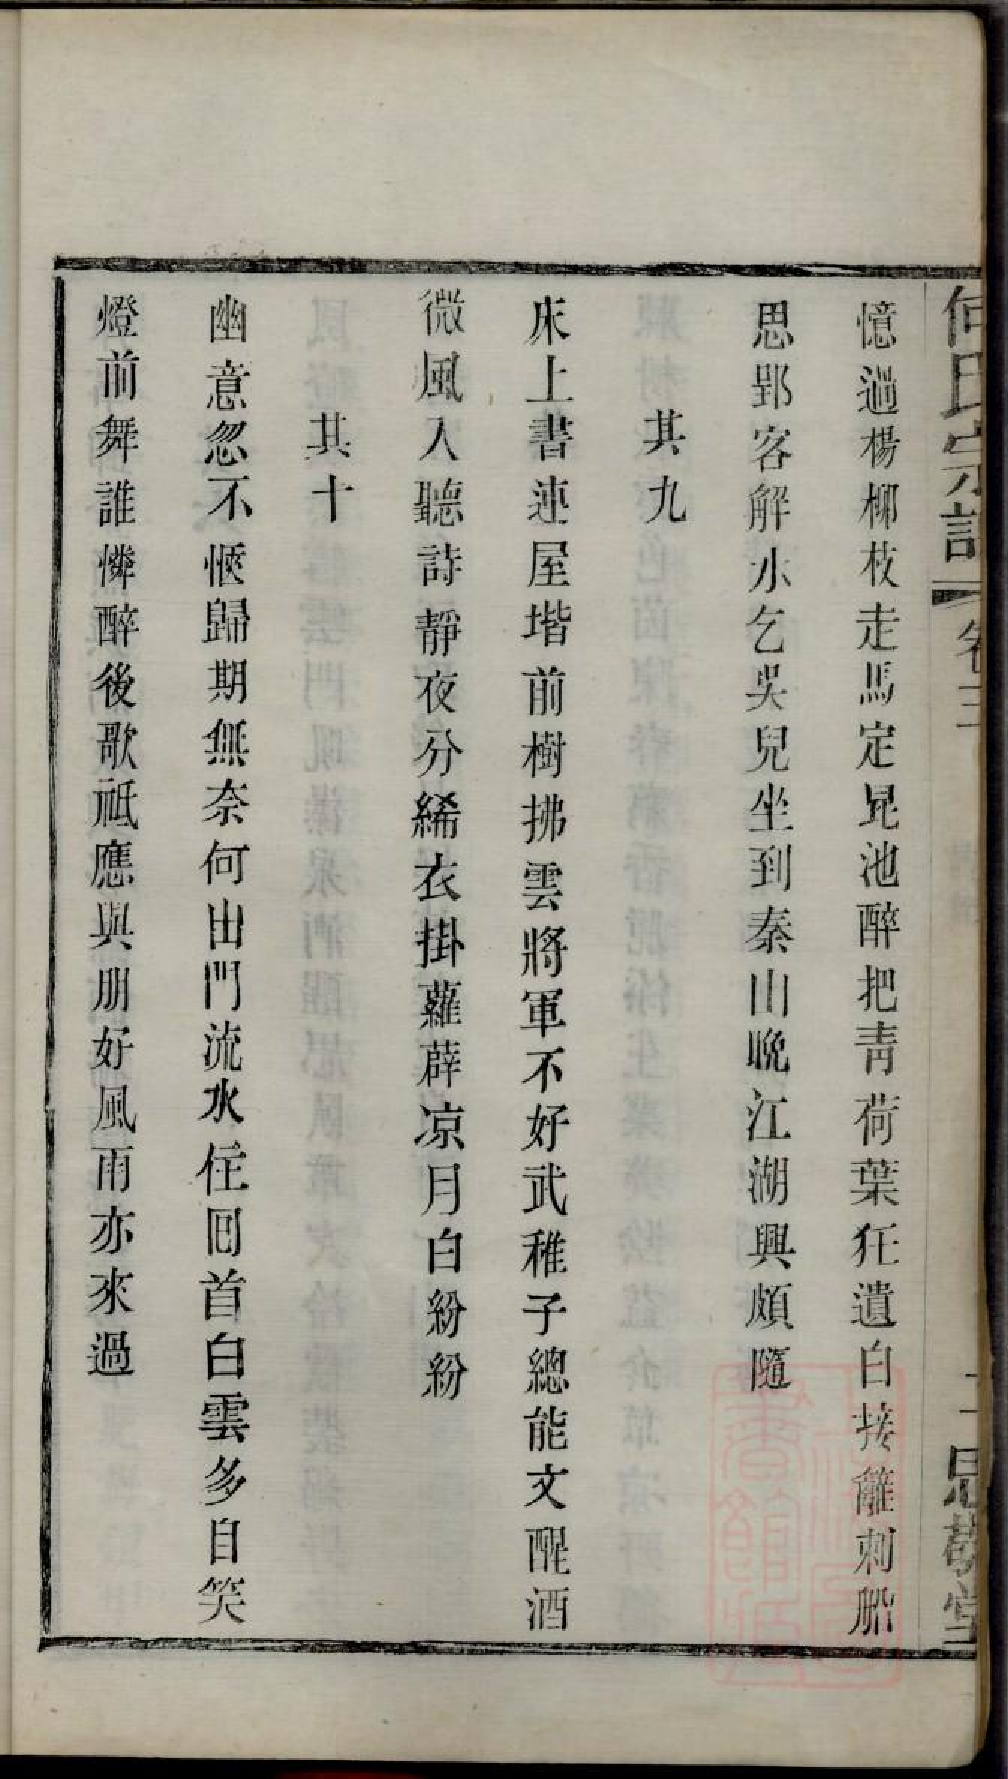 何氏宗譜 卷三 思敬堂
憶過楊柳枝走馬定昆池醉把青荷葉狂遺白接䍦刺船
思郢客解水乞吳兒坐到秦山晚江湖興頗隨
其九
床上書連屋堦前樹拂雲將軍不好武稚子總能文醒酒
微風入聽詩靜夜分絺衣掛蘿薜凉月白紛紛
其十
幽意忽不愜歸期無奈何出門流水住囘首白雲多自笑
燈前舞誰憐醉後歌祗應與朋好風雨亦來過